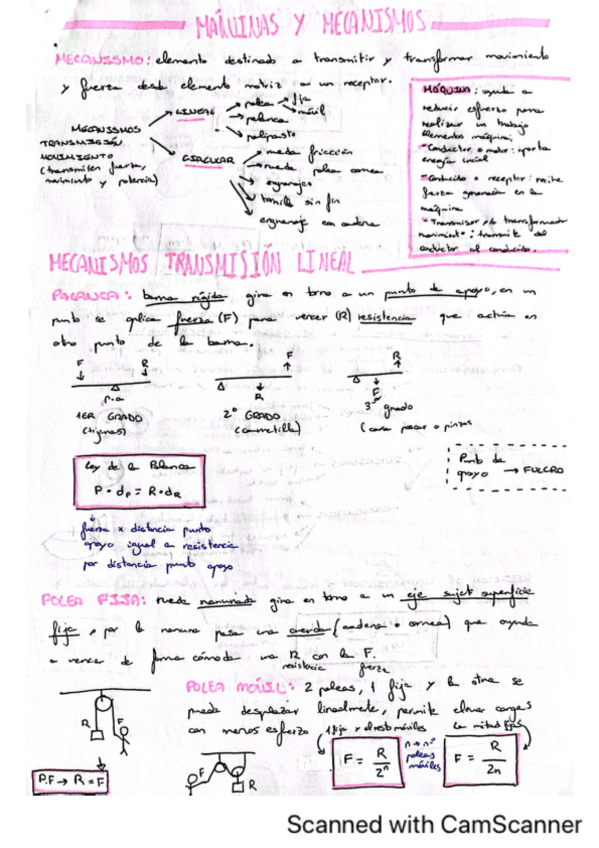 MÁQUINAS Y MECANISMOS
MECANISMO: elemento destinado a transmitir y transformar movimiento
y fuerza desde elemento motriz a un receptor.
MECANISMOS
TRANSMISIÓN
MOVIMIENTO
(transmiten fuerza,
movimiento y potencia)
LINEAL
polea
fija
móvil
palanca
polipasto
CIRCULAR
rueda fricción
rueda polea correa
engranajes
tornillo sin fin
engranaje con cadena
MÁQUINA: ayuda a
reducir esfuerzo para
realizar un trabajo
Elementos máquina:
Conductor o motor: aporta
energía inicial
Conducido o receptor: recibe
fuerza generada en la
máquina
Transmisor y/o transformador
movimiento: transmite del
conductor al conducido.
MECANISMOS TRANSMISIÓN LINEAL
PALANCA: barra rígida gira en torno a un punto de apoyo, en un
punto se aplica fuerza (F) para vencer (R) resistencia que actúa en
otro punto de la barra.
F R
p.a
1ER GRADO
(tijeras)
F
R
2º GRADO
(carretilla)
R
F
3er grado
(caña pescar o pinzas
Punto de
apoyo → FULCRO
Ley de la Palanca
P · dp = R · dR
fuerza x distancia punto
apoyo igual a resistencia
por distancia punto apoyo
POLEA FIJA: rueda ranurada gira en torno a un eje sujeto superficie
fija, por la ranura pasa una cuerda (cadena o correa) que ayuda
a vencer de forma cómoda una R con la F.
resistencia fuerza
POLEA MÓVIL: 2 poleas, 1 fija y la otra se
puede desplazar linealmente, permite elevar cargas
con menos esfuerzo
1 fija y el resto móviles
la mitad fijas
R F
P.F → R = F
F R
F = R / 2ⁿ
n → nº
poleas
móviles
F = R / 2n
Scanned with CamScanner